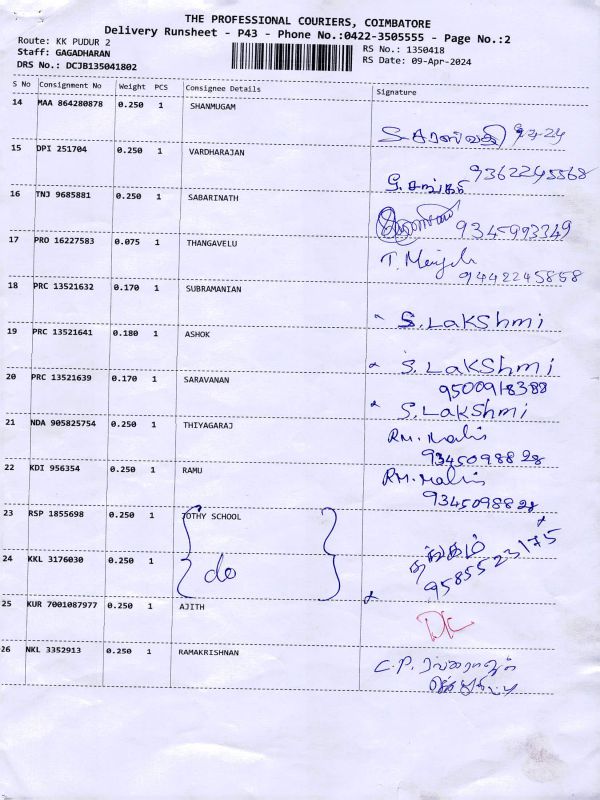 THE PROFESSIONAL COURIERS, COIMBATORE
Delivery Runsheet - P43 - Phone No.:0422-3505555 - Page No.:2
Route: KK PUDUR 2
Staff: GAGADHARAN
DRS No.: DCJB135041802
RS No.: 1350418
RS Date: 09-Apr-2024
S No Consignment No Weight PCS Consignee Details Signature
14 MAA 864280878 0.250 1 SHANMUGAM
S. சரஸ்வதி
15 DPI 251704 0.250 1 VARDHARAJAN
9362245568
16 TNJ 9685881 0.250 1 SABARINATH
9345993349
17 PRO 16227583 0.075 1 THANGAVELU
T.
9442245858
18 PRC 13521632 0.170 1 SUBRAMANIAN
S. Lakshmi
19 PRC 13521641 0.180 1 ASHOK
S. Lakshmi
9500918388
20 PRC 13521639 0.170 1 SARAVANAN
S. Lakshmi
21 NDA 905825754 0.250 1 THIYAGARAJ
RM.
9345098828
22 KDI 956354 0.250 1 RAMU
RM.
9345098828
23 RSP 1855698 0.250 1 JOTHY SCHOOL
24 KKL 3176030 0.250 1 do
தங்கம்
9585523175
25 KUR 7001087977 0.250 1 AJITH
26 NKL 3352913 0.250 1 RAMAKRISHNAN
C.P.